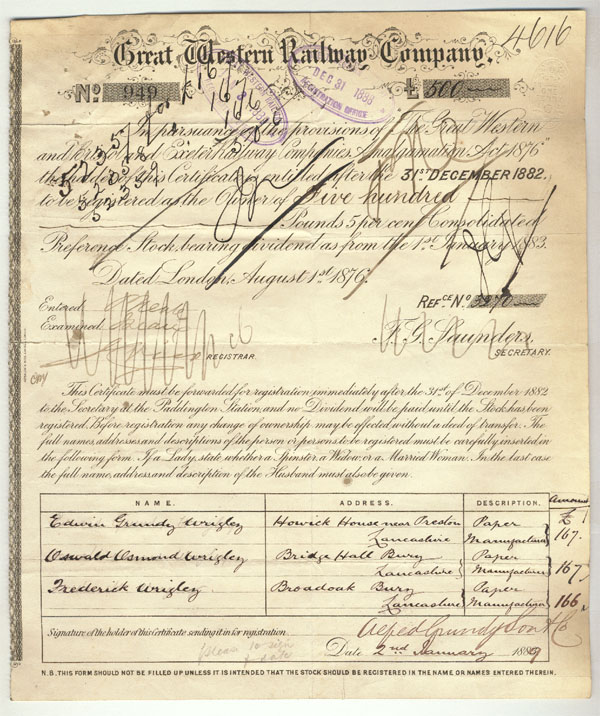 4616
Great Western Railway Company.
No. 949 £ 500
DEC 31 1883
REGISTRATION OFFICE
In pursuance of the provisions of "The Great Western
and Bristol and Exeter Railway Companies Amalgamation Act 1876"
the holder of this Certificate is entitled after the 31ST DECEMBER 1882.
to be registered as the Owner of Five hundred
Pounds 5 per cent Consolidated
Preference Stock, bearing dividend as from the 1st January 1883.
Dated London, August 1st 1876.
REFCE No. 3270
Entered
Examined
F. G. Saunders.
REGISTRAR.
SECRETARY.
This Certificate must be forwarded for registration immediately after the 31st of December 1882
to the Secretary at the Paddington Station, and no Dividend will be paid until the Stock has been
registered. Before registration any change of ownership may be effected without a deed of transfer. The
full names, addresses and descriptions of the person or persons to be registered must be carefully inserted in
the following form. If a Lady, state whether a Spinster, a Widow, or a Married Woman. In the last case
the full name, address, and description of the Husband must also be given.
NAME. ADDRESS. DESCRIPTION. Amount
£
Edwin Grundy Wrigley Howick House near Preston Paper
Lancashire Manufacturer 167
Oswald Osmond Wrigley Bridge Hall Bury Paper
Lancashire Manufacturer 167
Frederick Wrigley Broadoak Bury Paper
Lancashire Manufacturer 166
Signature of the holder of this Certificate sending it in for registration. Alfred Grundy Son & Co
Please to sign
& date
Date 2nd January 188
N.B. THIS FORM SHOULD NOT BE FILLED UP UNLESS IT IS INTENDED THAT THE STOCK SHOULD BE REGISTERED IN THE NAME OR NAMES ENTERED THEREIN.